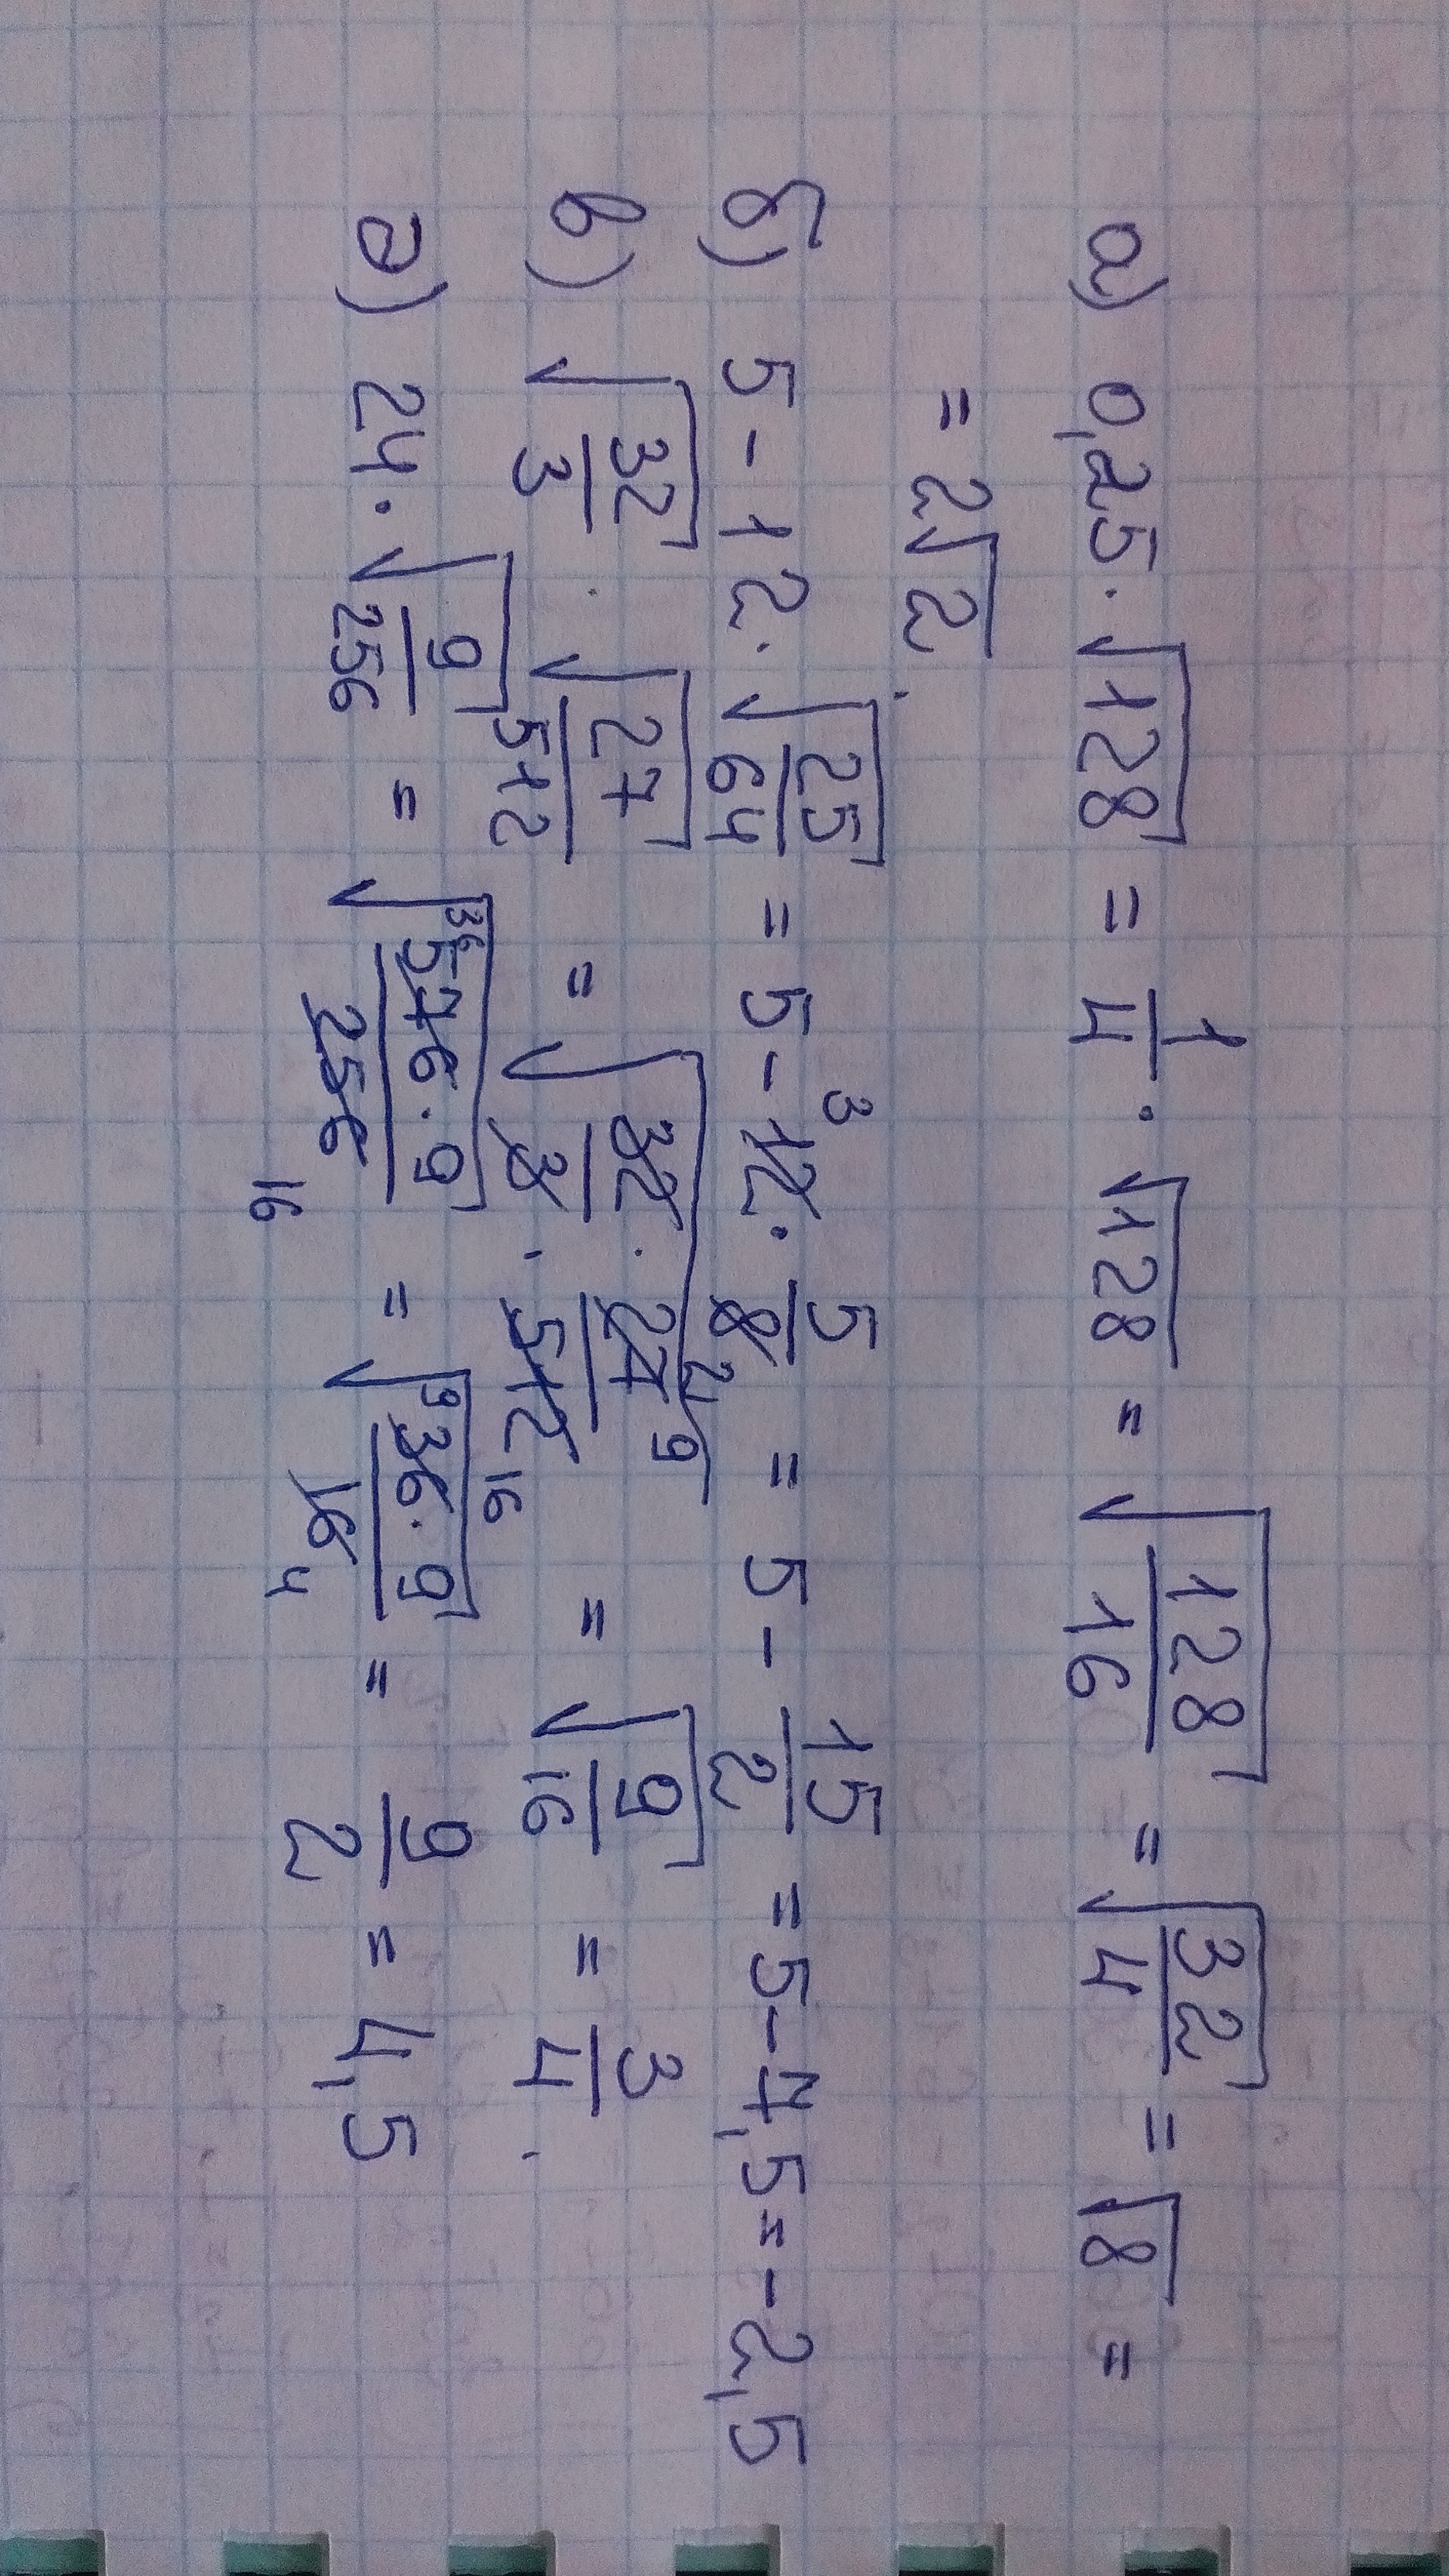 а) 0,25 · √128 = 1/4 · √128 = √(128/16) = √(32/4) = √8 =
= 2√2
б) 5 - 12 · √(25/64) = 5 - 12 3 · 5/8 2 = 5 - 15/2 = 5 - 7,5 = -2,5
в) √(32/3) · √(27/512) = √(32/3 · 27 9/512 16) = √(9/16) = 3/4
г) 24 · √(9/256) = √(36 576 · 9/256 16) = √(9 36 · 9/16 4) = 9/2 = 4,5